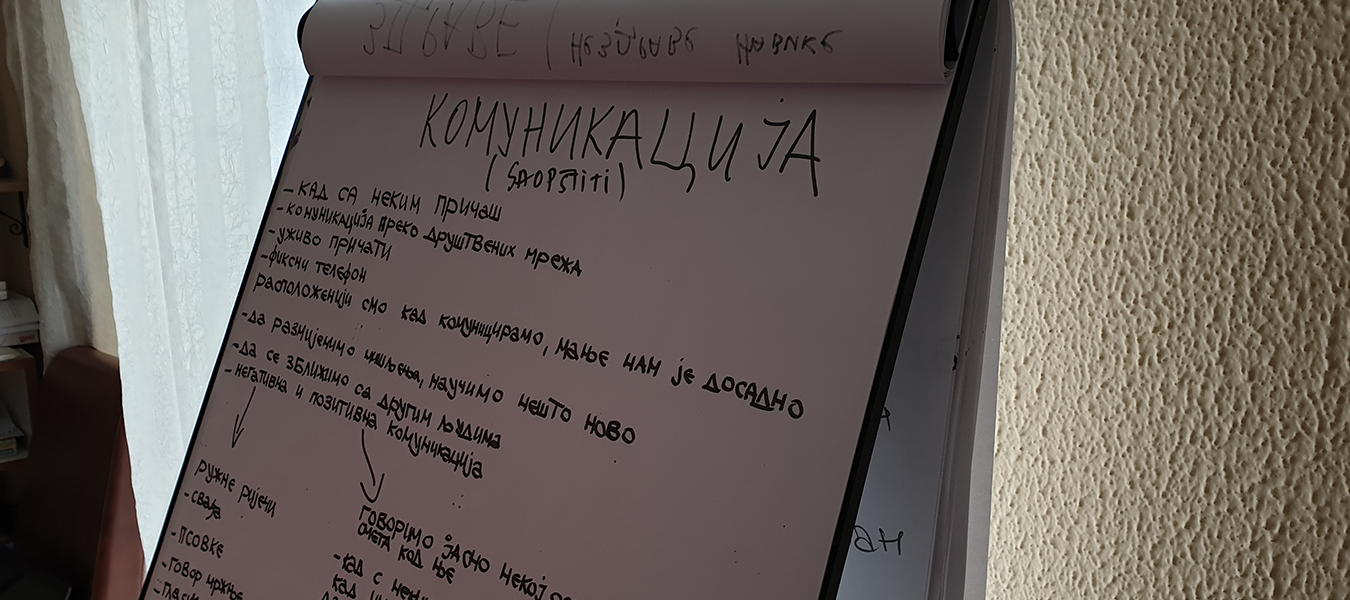 ЗДРАВЕ / НЕЗДРАВЕ НАВИКЕ
КОМУНИКАЦИЈА
(SAOPŠTITI)
- КАД СА НЕКИМ ПРИЧАШ
- КОМУНИКАЦИЈА ПРЕКО ДРУШТВЕНИХ МРЕЖА
- УЖИВО ПРИЧАТИ
- ФИКСНИ ТЕЛЕФОН
РАСПОЛОЖЕНИЈИ СМО КАД КОМУНИЦИРАМО, МАЊЕ НАМ ЈЕ ДОСАДНО
- ДА РАЗМИЈЕНИМО МИШЉЕЊА, НАУЧИМО НЕШТО НОВО
- ДА СЕ ЗБЛИЖИМО СА ДРУГИМ ЉУДИМА
- НЕГАТИВНА И ПОЗИТИВНА КОМУНИКАЦИЈА
РУЖНЕ РИЈЕЧИ
- СВАЂА
- ПСОВКЕ
- ГОВОР МРЖЊЕ
ГОВОРИМО ЈАСНО НЕКОЈ
СМЕТА КОД ЊЕ
- КАД С НЕКИМ
КАД
АН